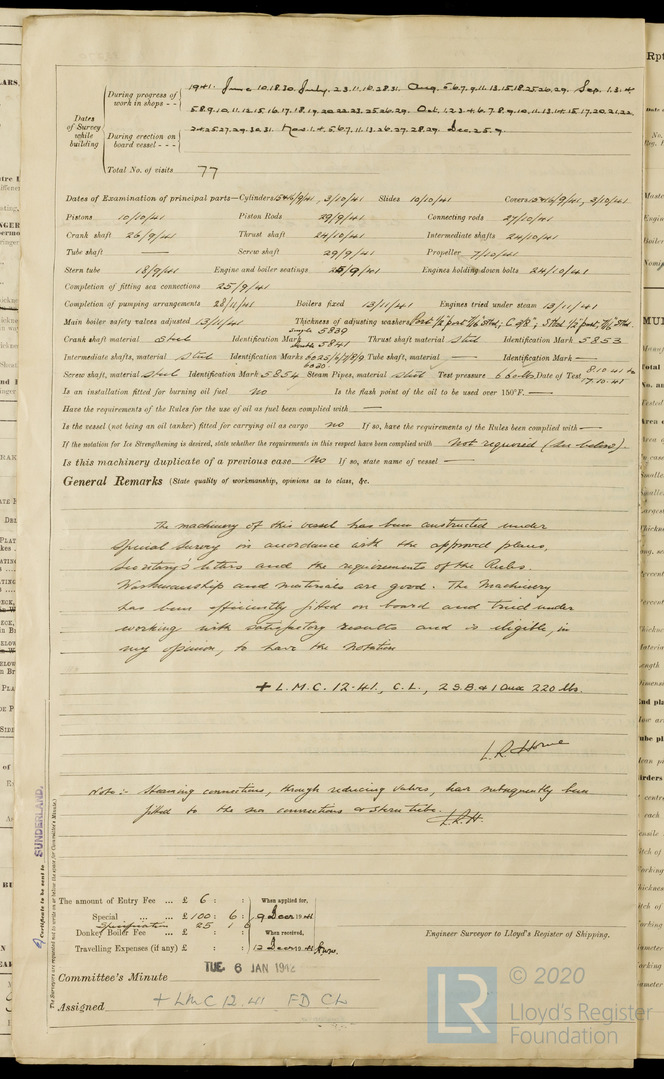 Dates of Survey while building
During progress of work in shops - - 1941. June 10.18.30. July. 2.3.11.18.28.31. Aug. 5.6.7.9.11.13.15.18.25.26.29. Sep. 1.3.4
5.8.9.10.11.12.15.16.17.18.19.20.22.23.25.26.29. Oct. 1.2.3.4.6.7.8.9.10.11.13.14.15.17.20.21.22.
During erection on board vessel - - - 24.25.27.29.30.31. Nov. 1.4.5.6.7.11.13.26.27.28.29. Dec. 2.5.9.
Total No. of visits 77
Dates of Examination of principal parts—Cylinders 15+16/9/41, 3/10/41 Slides 10/10/41 Covers 15+16/9/41, 3/10/41
Pistons 10/10/41 Piston Rods 29/9/41 Connecting rods 27/10/41
Crank shaft 26/9/41 Thrust shaft 24/10/41 Intermediate shafts 24/10/41
Tube shaft — Screw shaft 29/9/41 Propeller 7/10/41
Stern tube 18/9/41 Engine and boiler seatings 25/9/41 Engines holding down bolts 24/10/41
Completion of fitting sea connections 25/9/41
Completion of pumping arrangements 28/11/41 Boilers fixed 13/11/41 Engines tried under steam 13/11/41
Main boiler safety valves adjusted 13/11/41 Thickness of adjusting washers
Crank shaft material Steel Identification Mark 5839 5841 Thrust shaft material Steel Identification Mark 5853
Intermediate shafts, material Steel Identification Marks 6025/6/7/8/9 6020 Tube shaft, material — Identification Mark —
Screw shaft, material Steel Identification Mark 5854 Steam Pipes, material Steel Test pressure 660 lbs Date of Test 8.10.41 to 17.10.41
Is an installation fitted for burning oil fuel no Is the flash point of the oil to be used over 150°F. —
Have the requirements of the Rules for the use of oil as fuel been complied with —
Is the vessel (not being an oil tanker) fitted for carrying oil as cargo no If so, have the requirements of the Rules been complied with —
If the notation for Ice Strengthening is desired, state whether the requirements in this respect have been complied with Not required (See below).
Is this machinery duplicate of a previous case No If so, state name of vessel —
General Remarks (State quality of workmanship, opinions as to class, &c.
The machinery of this vessel has been constructed under
Special Survey in accordance with the approved plans,
Secretary's letters and the requirements of the Rules.
Workmanship and materials are good. The Machinery
has been efficiently fitted on board and tried under
working with satisfactory results and is eligible, in
my opinion, to have the notation
+ L.M.C. 12-41., C.L., 2 S.B. & 1 aux 220 lbs.
L.R. Horne
Note:- Steaming connections, through reducing valves, have subsequently been
fitted to the sea connections & stern tube.
L.R.H.
Certificate to be sent to SUNDERLAND.
The Surveyors are requested not to write on or below the space for Committee's Minute.
The amount of Entry Fee ... £ 6 : : When applied for,
Special ... ... £ 100 : 6 : 9 Decr 1941
Specification 25 1 6
Donkey Boiler Fee ... £ : : When received,
Travelling Expenses (if any) £ : : 12 Decr 1941
Engineer Surveyor to Lloyd's Register of Shipping.
Committee's Minute TUE 6 JAN 1942
Assigned + LMC 12.41 FD CL
© 2020
LR
Lloyd's Register
Foundation